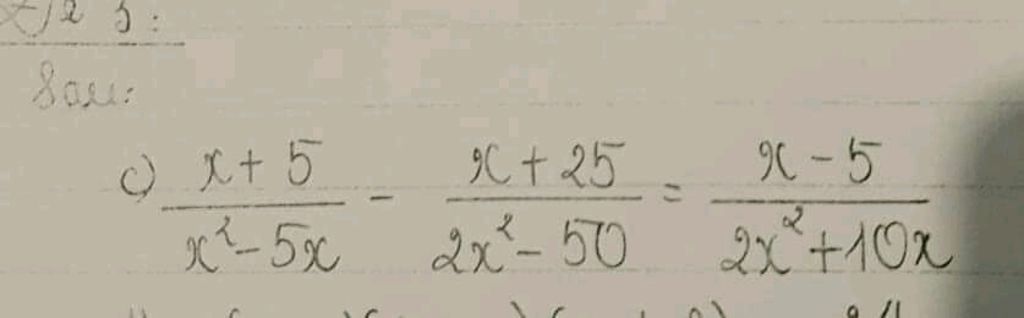 Sau:
c) \frac{x+5}{x^2-5x} - \frac{x+25}{2x^2-50} = \frac{x-5}{2x^2+10x}